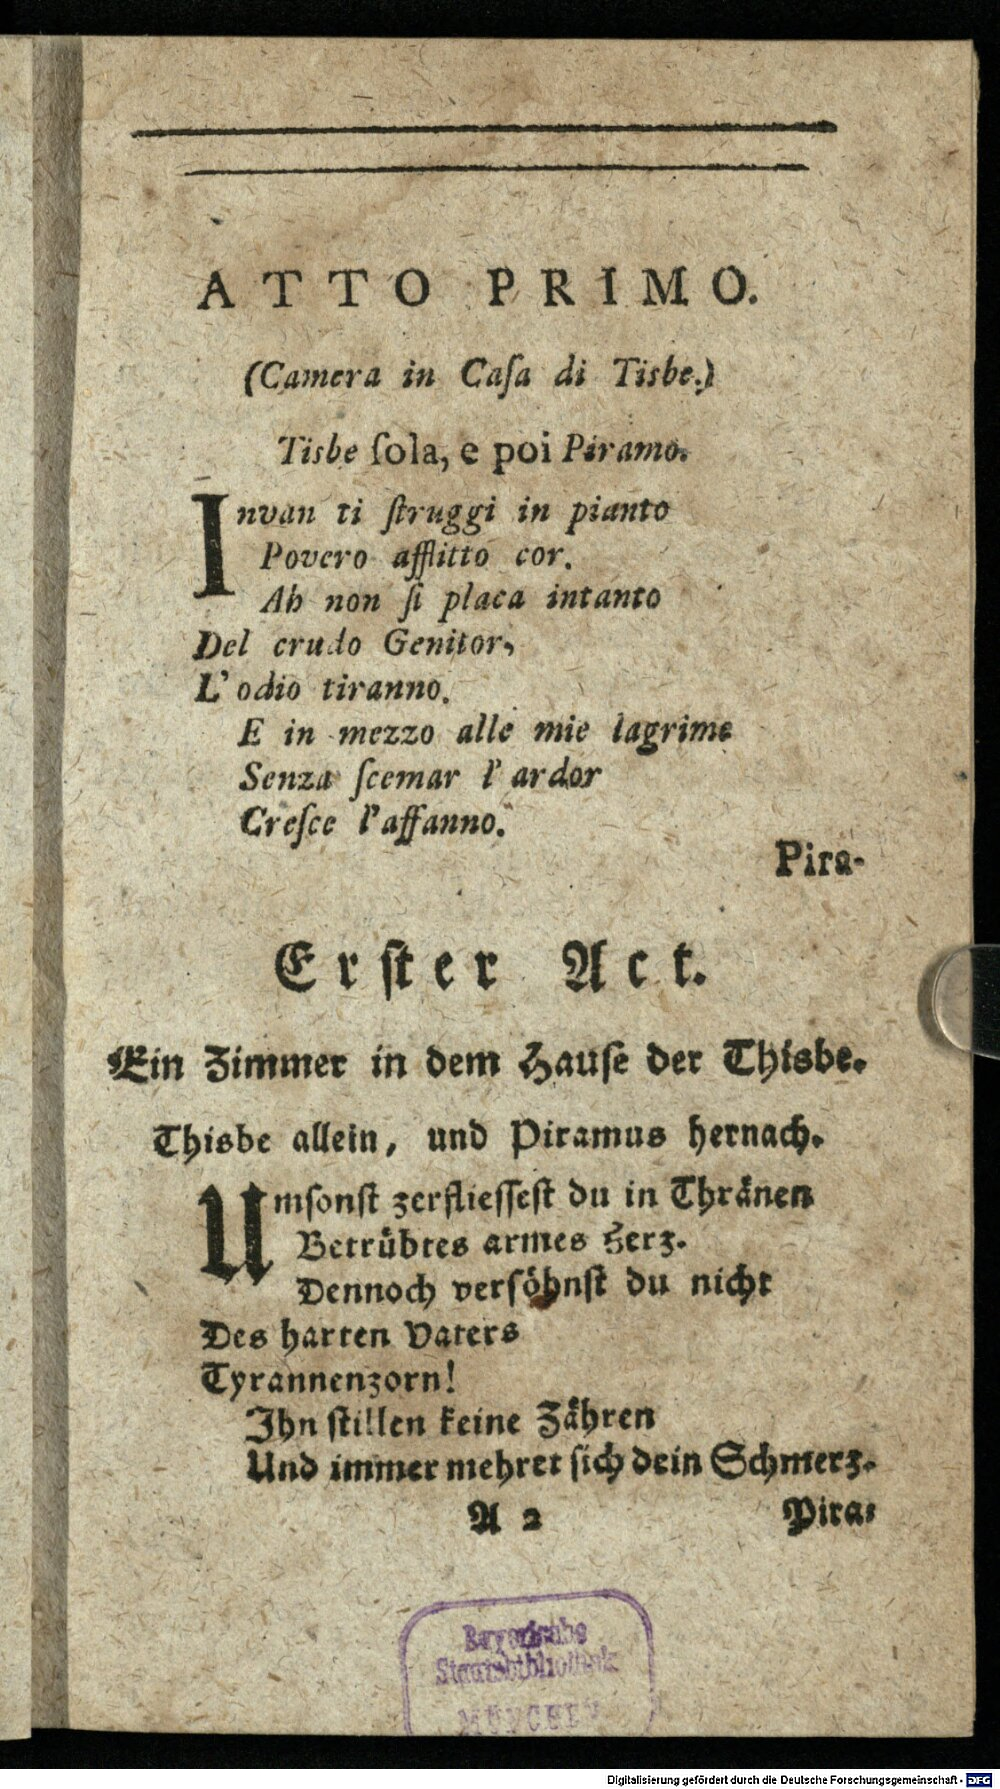 ATTO PRIMO.
(Camera in Caſa di Tisbe.)
Tisbe ſola, e poi Piramo.
Invan ti ſtruggi in pianto
Povero afflitto cor.
Ah non ſi placa intanto
Del crudo Genitor,
L'odio tiranno.
E in mezzo alle mie lagrime
Senza ſcemar l'ardor
Creſce l'affanno.
Pira-
Erſter Act.
Ein Zimmer in dem Hauſe der Thisbe.
Thisbe allein, und Piramus hernach.
Umſonſt zerflieſſeſt du in Thränen
Betrübtes armes Herz.
Dennoch verſöhnſt du nicht
Des harten Vaters
Tyrannenzorn!
Ihn ſtillen keine Zähren
Und immer mehret ſich dein Schmerz.
A 2
Pira-
Bayerische
Staatsbibliothek
MÜNCHEN
Digitalisierung gefördert durch die Deutsche Forschungsgemeinschaft - DFG